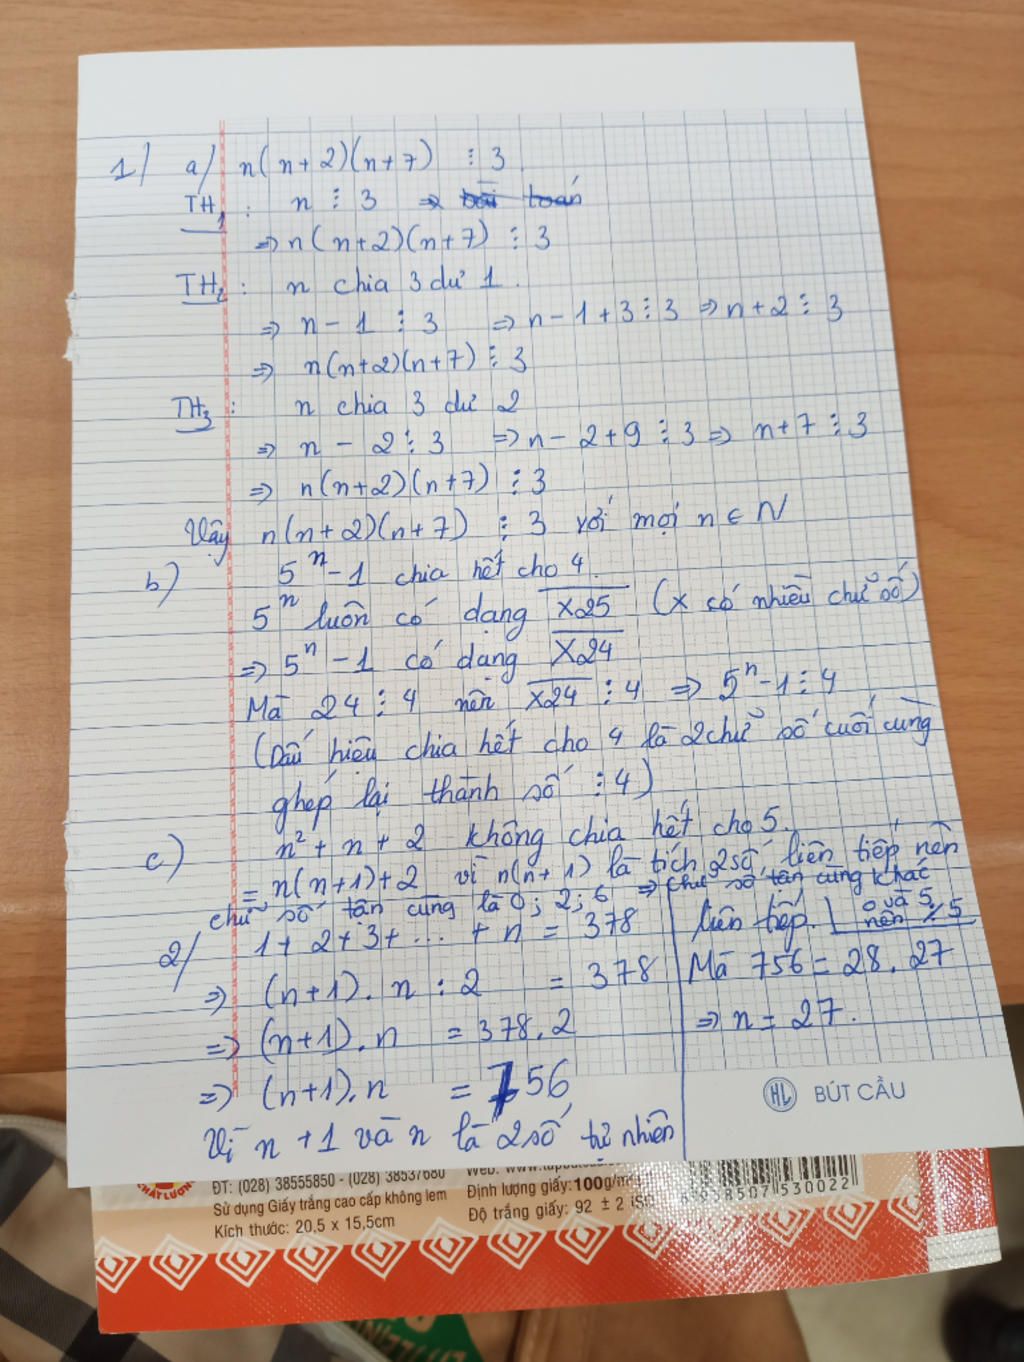 1/ a/ n(n+2)(n+7) ⋮ 3.
TH1: n ⋮ 3 => bài toán
=> n(n+2)(n+7) ⋮ 3
TH2: n chia 3 dư 1.
=> n-1 ⋮ 3 => n-1+3 ⋮ 3 => n+2 ⋮ 3
=> n(n+2)(n+7) ⋮ 3
TH3: n chia 3 dư 2
=> n - 2 ⋮ 3 => n-2+9 ⋮ 3 => n+7 ⋮ 3
=> n(n+2)(n+7) ⋮ 3
Vậy n(n+2)(n+7) ⋮ 3 với mọi n ∈ N
b) 5ⁿ-1 chia hết cho 4.
5ⁿ luôn có dạng X25 (x có nhiều chữ số)
=> 5ⁿ-1 có dạng X24
Mà 24 ⋮ 4 nên X24 ⋮ 4 => 5ⁿ-1 ⋮ 4
(Dấu hiệu chia hết cho 4 là 2 chữ số cuối cùng
ghép lại thành số ⋮ 4)
c) n²+n+2 không chia hết cho 5.
= n(n+1)+2 vì n(n+1) là tích 2 số liên tiếp nên
chữ số tận cùng là 0; 2; 6 => chữ số tận cùng khác
0 và 5
nên ⋮̸ 5
2/ 1+2+3+...+n = 378
=> (n+1).n : 2 = 378
=> (n+1).n = 378.2
=> (n+1).n = 756
Vì n+1 và n là 2 số tự nhiên
liên tiếp.
Mà 756 = 28.27
=> n = 27.
HL BÚT CẦU
CHẤT LƯỢNG
ĐT: (028) 38555850 - (028) 38537680
Sử dụng Giấy trắng cao cấp không lem
Kích thước: 20,5 x 15,5cm
Định lượng giấy: 100g/m²
Độ trắng giấy: 92 ± 2